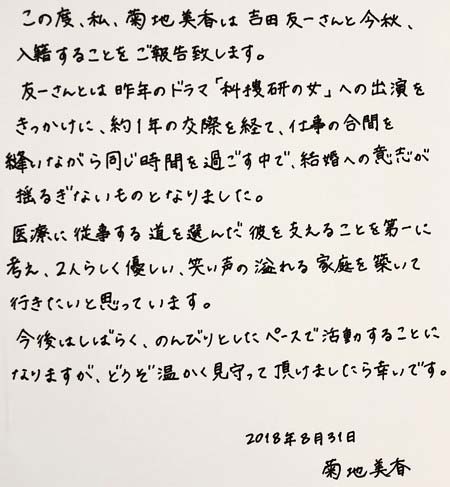 この度、私、菊地美香は吉田友一さんと今秋、
入籍することをご報告致します。
友一さんとは昨年のドラマ「科捜研の女」への出演を
きっかけに、約1年の交際を経て、仕事の合間を
縫いながら同じ時間を過ごす中で、結婚への意志が
揺るぎないものとなりました。
医療に従事する道を選んだ彼を支えることを第一に
考え、2人らしく優しい、笑い声の溢れる家庭を築いて
行きたいと思っています。
今後はしばらく、のんびりとしたペースで活動することに
なりますが、どうぞ温かく見守って頂けましたら幸いです。
2018年8月31日
菊地美香